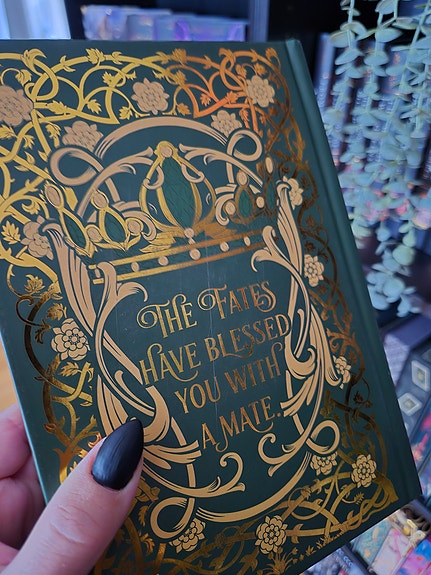 THE FATES
HAVE BLESSED
YOU WITH
A MATE.